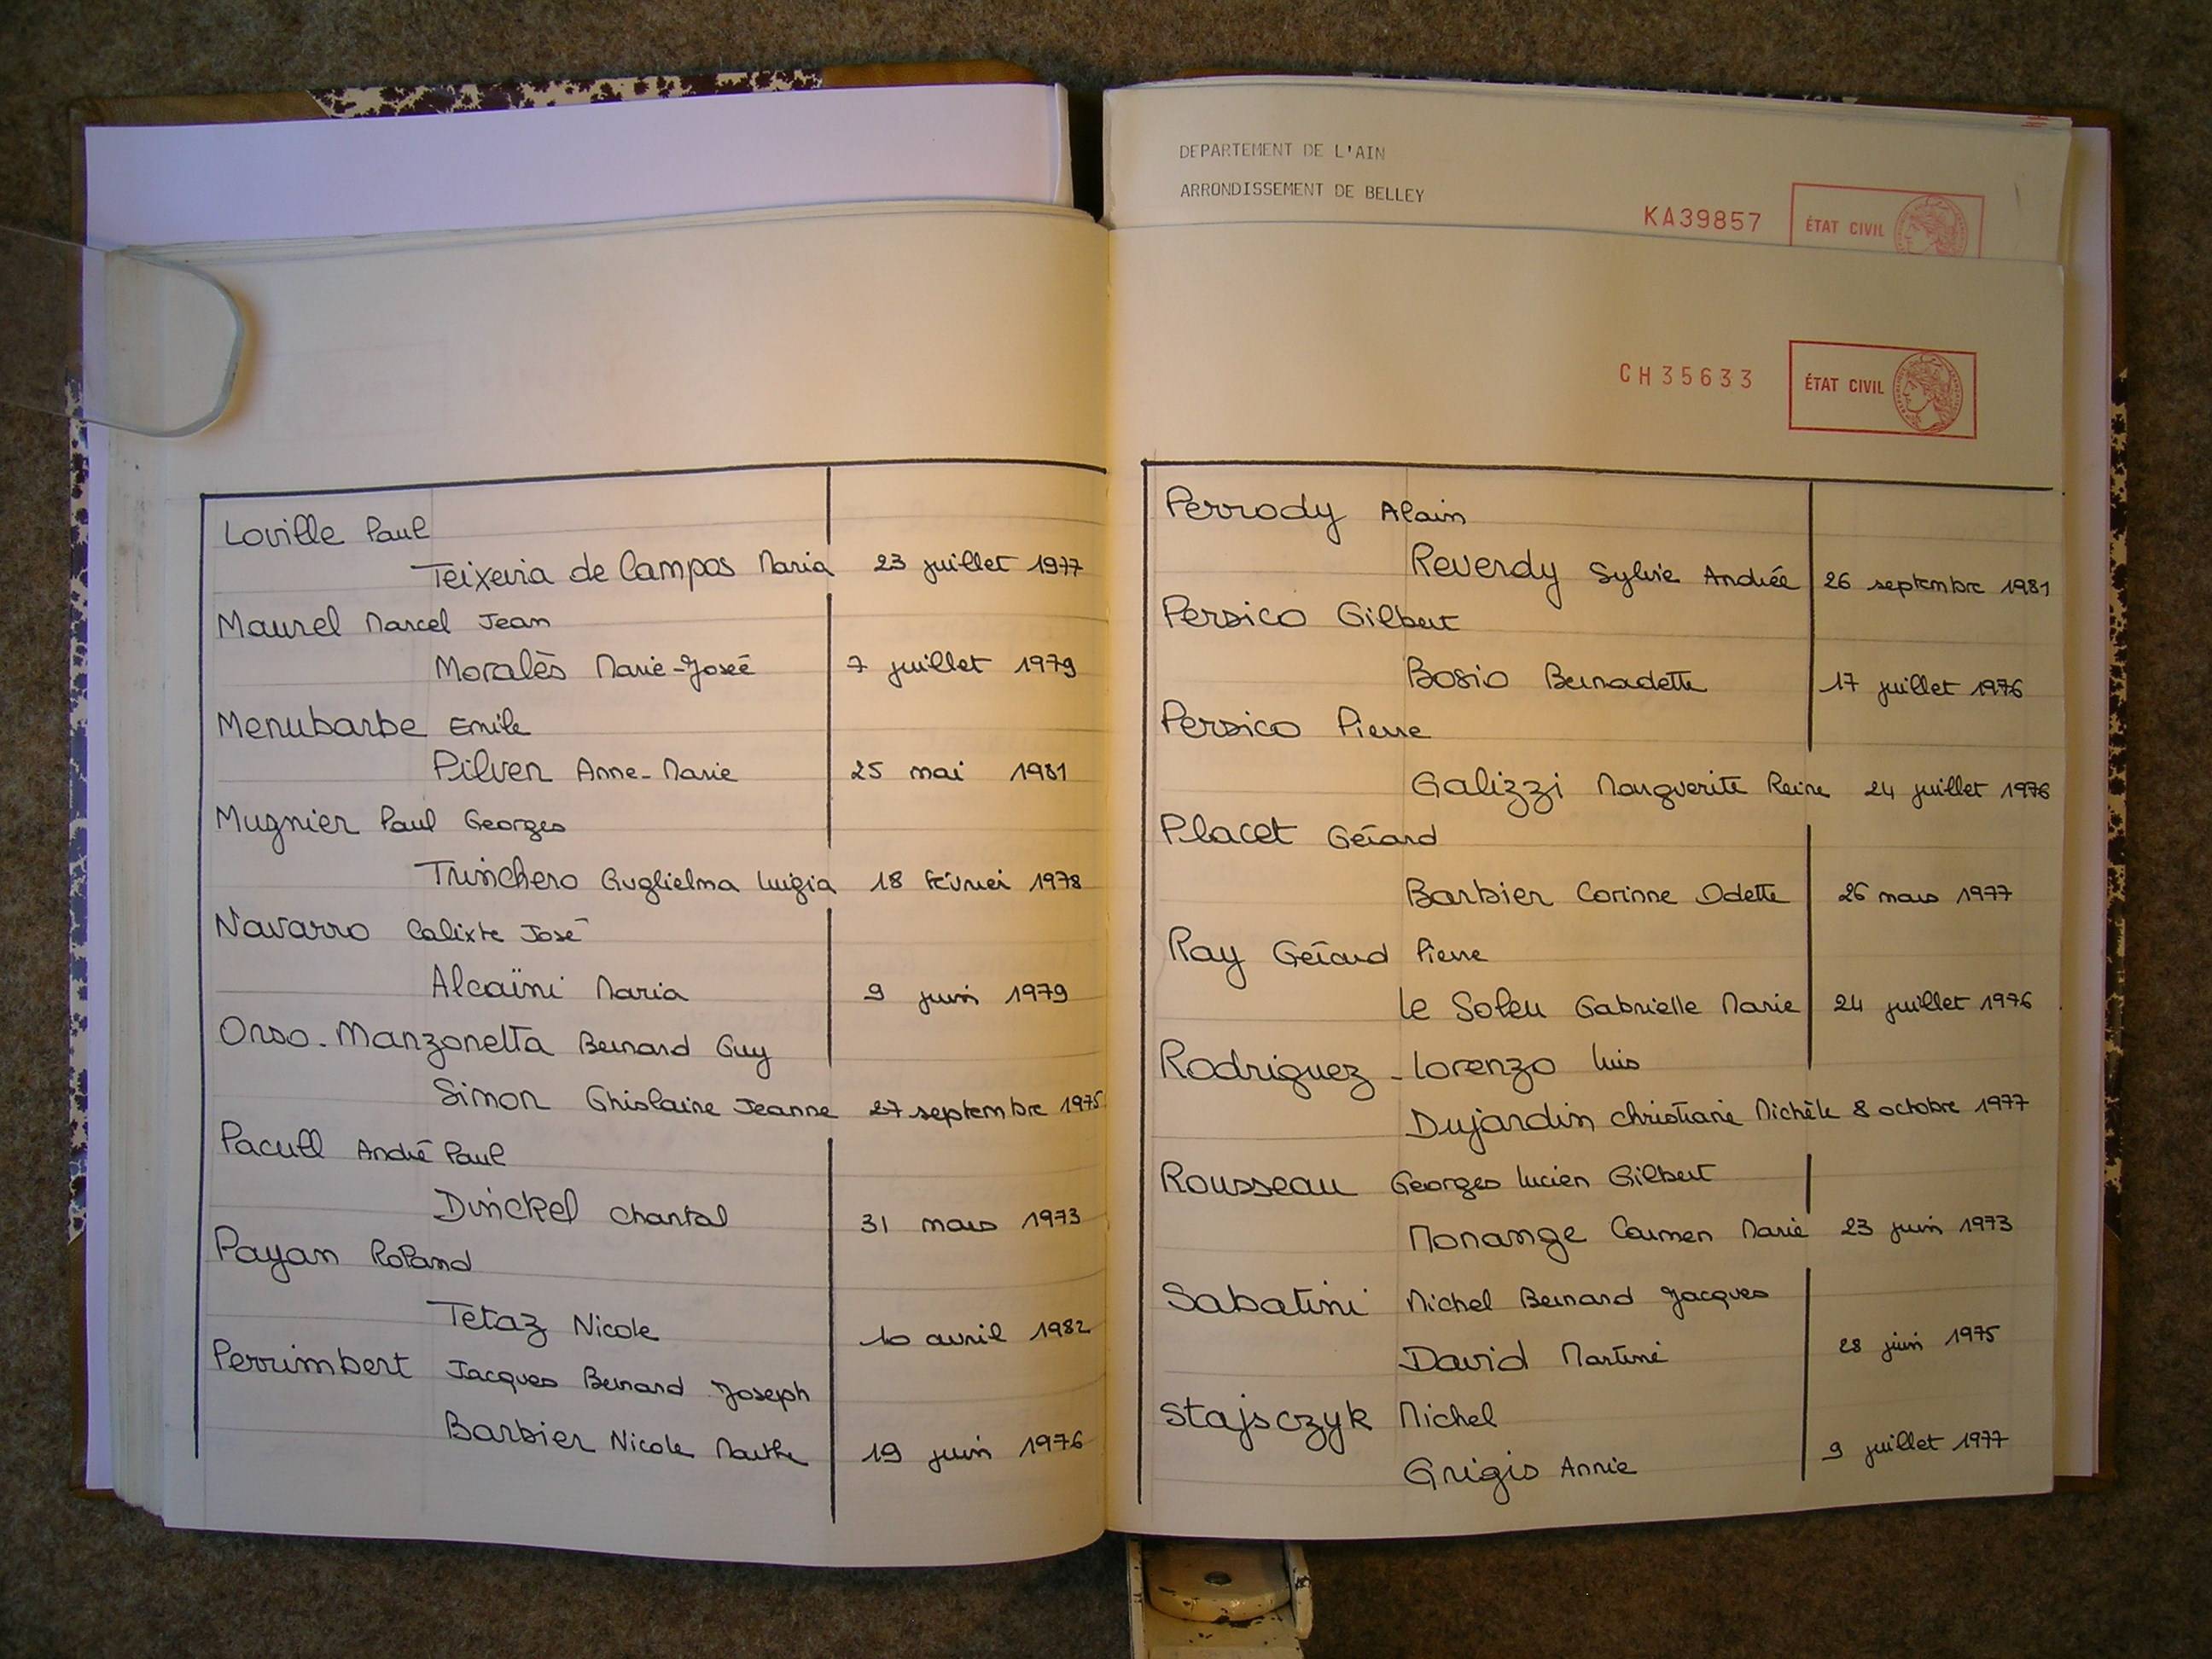 Loville Paul
Teixeira de Campos Maria 23 juillet 1977
Maurel Marcel Jean
Moralès Marie-Josée 7 juillet 1979
Menubarbe Emile
Pilven Anne-Marie 25 mai 1981
Mugnier Paul Georges
Trinchero Guglielma Luigia 18 février 1978
Navarro Calixte José
Alcaïni Maria 9 juin 1979
Orso-Manzonetta Bernard Guy
Simon Ghislaine Jeanne 27 septembre 1975
Pacull André Paul
Dinckel Chantal 31 mars 1973
Payan Roland
Tetaz Nicole 10 avril 1982
Perrimbert Jacques Bernard Joseph
Barbier Nicole Marthe 19 juin 1976
DEPARTEMENT DE L'AIN
ARRONDISSEMENT DE BELLEY
KA39857 ÉTAT CIVIL
CH35633 ÉTAT CIVIL
Perrody Alain
Reverdy Sylvie Andrée 26 septembre 1981
Persico Gilbert
Bosio Bernadette 17 juillet 1976
Persico Pierre
Galizzi Marguerite Reine 24 juillet 1976
Placet Gérard
Barbier Corinne Odette 26 mars 1977
Ray Gérard Pierre
Le Soleu Gabrielle Marie 24 juillet 1976
Rodriguez - Lorenzo Luis
Dujardin Christiane Michèle 8 octobre 1977
Rousseau Georges Lucien Gilbert
Monange Carmen Marie 23 juin 1973
Sabatini Michel Bernard Jacques
David Martine 28 juin 1975
Stajsczyk Michel
Grigis Annie 9 juillet 1977